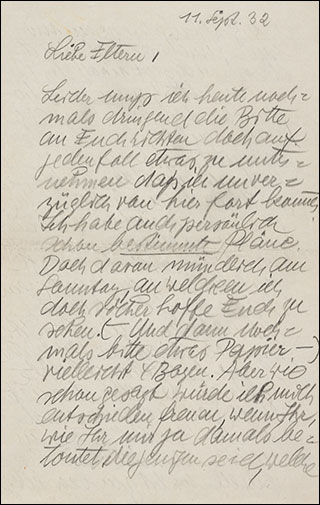 11. Sept. 32
Liebe Eltern,
Leider muss ich heute noch=
mals dringend die Bitte
an Euch richten doch auf
jeden Fall etwas zu unter=
nehmen dass ich unver=
züglich von hier fort komme.
Ich habe auch persönlich
schon bestimmte Pläne.
Doch davon mündlich am
Sonntag, an welchem ich
doch sicher hoffe Euch zu
sehen. (– Und dann noch=
mals bitte etwas Papier –)
vielleicht 4 Bogen. Aber wie
schon gesagt würde ich mich
entschieden freuen, wenn Ihr,
wie Ihr mir ja damals be=
tontet diejenigen seid, welche